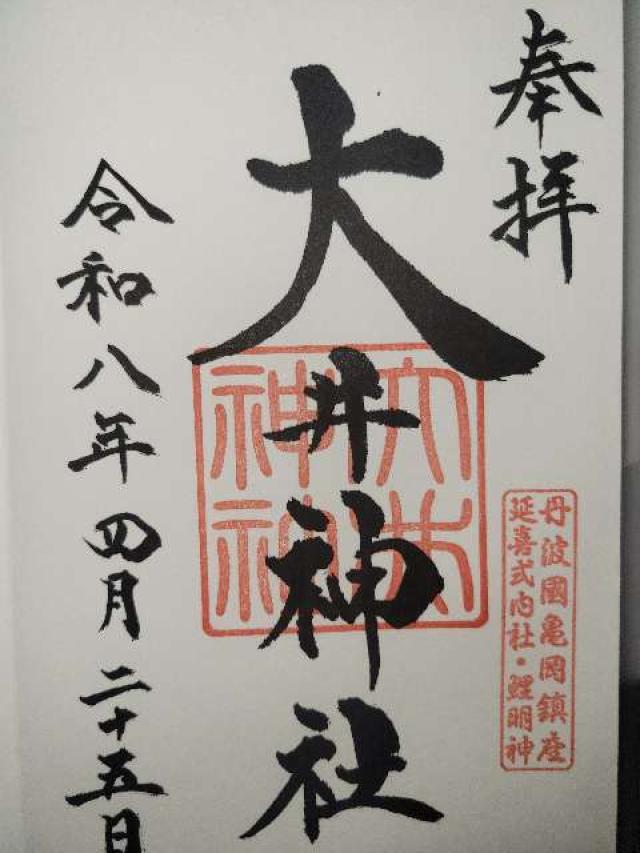 奉拝
丹波國亀岡鎮座
延喜式内社・鯉明神
大井神社
令和八年四月二十五日